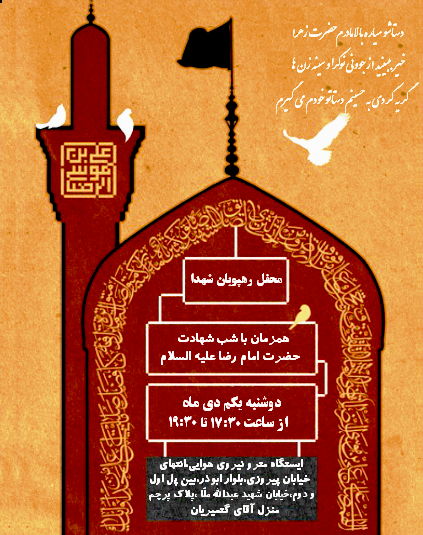 دستاشو میاره بالا مادرم حضرت زهرا
خیر ببینید از جوونی نوکرا و سینه زن ها
گریه کردی به حسینم دستاتو خودم می گیرم
علی بن موسی الرضا
محفل رهپویان شهدا
همزمان با شب شهادت
حضرت امام رضا علیه السلام
دوشنبه یکم دی ماه
از ساعت ۱۷:۳۰ تا ۱۹:۳۰
ایستگاه مترو نیروی هوایی،انتهای
خیابان پیروزی،بلوار ابوذر،بین پل اول
و دوم،خیابان شهید عبدالله ملّا ،پلاک پرچم
منزل آقای گعسیریان